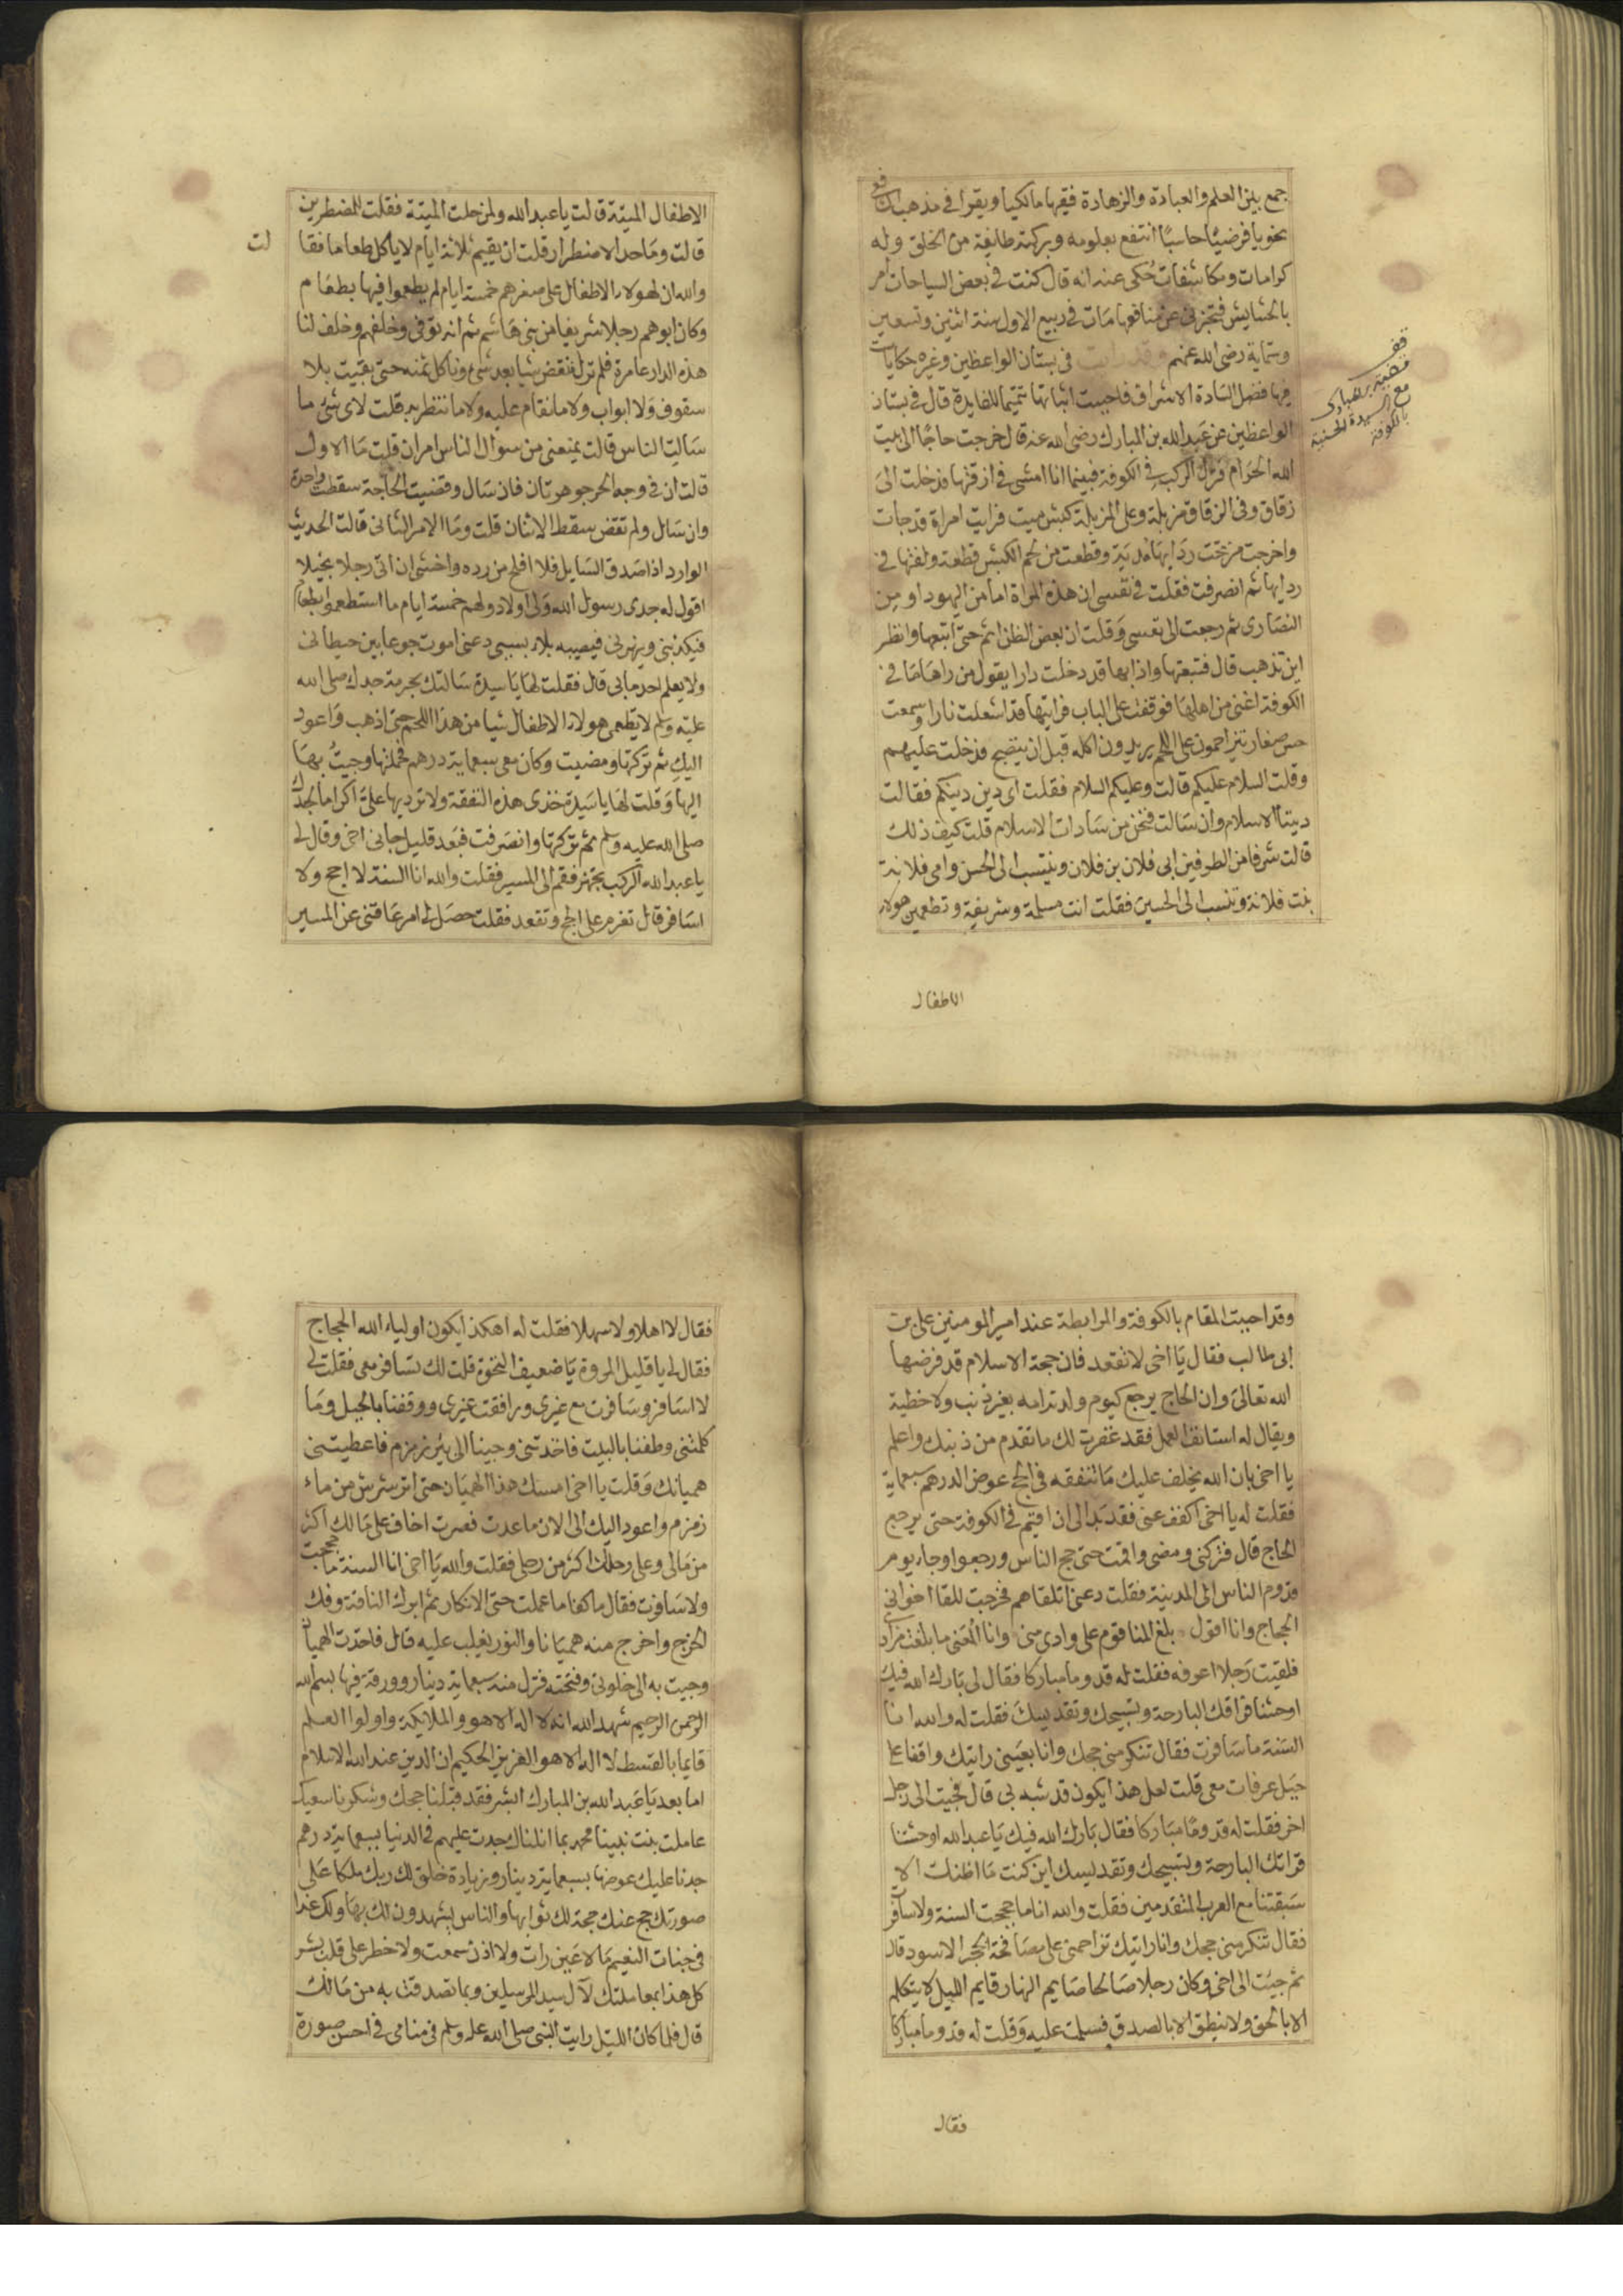 جمع بين العلم والعبادة والزهادة فقيها مالكيا ويقرا في مذهب الشافعي
نحويا فرضيا حاسبا انتفع بعلومه وبركته طايفة من الخلق وله
كرامات ومكاشفات حكى عنه انه قال كنت في بعض السياحات امر
بالحشايش فتخبرني عن منافعها مات في ربيع الاول سنة اثنين وتسعين
وستماية رضى الله عنهم وقد رايت في بستان الواعظين وغيره حكايات
فيها فضل السادة الاشراف فاحببت اثباتها تتميما للفايدة قال في بستان
الواعظين عن عبد الله بن المبارك رضى الله عنه قال خرجت حاجا الى بيت
الله الحرام فنزل الركب في الكوفة فبينما انا امشى في ازقتها فدخلت الى
زقاق وفي الزقاق مزبلة وعلى المزبلة كبش ميت فرايت امراة قد جات
واخرجت من تحت ردايها مدية وقطعت من لحم الكبش قطعة ولفتها في
ردايها ثم انصرفت فقلت في نفسى ان هذه المراة اما من اليهود او من
النصارى ثم رجعت الى نفسى وقلت ان بعض الظن اثم حتى اتبعها وانظر
اين تذهب قال فتبعتها واذا بها قد دخلت دارا يقول من راها ما في
الكوفة اغنى من اهلها فوقفت على الباب فرايتها قد اشعلت نارا وسمعت
حس صغار يتزاحمون على اللحم يريدون اكله قبل ان ينضج فدخلت عليهم
وقلت السلام عليكم قالت وعليكم السلام فقلت اى دين دينكم فقالت
ديننا الاسلام وان سالت فنحن من سادات الاسلام قلت كيف ذلك
قالت شرفا من الطرفين ابى فلان بن فلان وينتسب الى الحسن وامى فلانة
بنت فلانة وتنسب الى الحسين فقلت انت مسلمة وشريفة وتطعمين هولاء
الاطفال
قف
مع السيدة الحسنية
بالكوفة
الاطفال الميتة قالت يا عبد الله ولمن حلت الميتة فقلت للمضطرين
قالت وما حد الاضطرار قلت ان يقيم ثلاثة ايام لا ياكل طعاما فقا
لت
والله ان لهولاء الاطفال على صغرهم خمسة ايام لم يطعموا فيها بطعام
وكان ابوهم رجلا شريفا من بنى هاشم ثم انه توفى وخلفهم وخلف لنا
هذه الدار عامرة فلم نزل ننقض شيا بعد شى وناكل ثمنه حتى بقيت بلا
سقوف ولا ابواب ولا ما نقام عليه ولا ما ننتظر به قلت لاى شى ما
سالتي الناس قالت يمنعنى من سوال الناس امران قلت ما الاول
قالت ان في وجه الحر جوهرتان فان سال وقضيت الحاجة سقطت واحدة
وان سال ولم تقض سقط الاثنان قلت وما الامر الثانى قالت الحديث
الوارد اذا صدق السايل فلا افلح من رده واخشى ان اتى رجلا بخيلا
اقول له جدى رسول الله ولى اولاد ولهم خمسة ايام ما استطعموا بطعام
فيكذبنى وينهرنى فيصيبه بلاء بسببى دعنى اموت جوعا بين حيطانى
ولا يعلم احد ما بى قال فقلت لها يا سيدة سالتك بحرمة جدك صلى الله
عليه وسلم لا تطعمى هولاء الاطفال شيا من هذا اللحم حتى اذهب واعود
اليك ثم تركتها ومضيت وكان معى سبعماية درهم فحملتها وجيت بها
اليها وقلت لها يا سيدة خذى هذه النفقة ولا ترديها على اكراما لجدك
صلى الله عليه وسلم ثم تركتها وانصرفت فبعد قليل جانى اخى وقال لى
يا عبد الله الركب تجهز فقم الى المسير فقلت والله انا السنة لا احج ولا
اسافر قال تغرم على الحج وتقعد فقلت حصل لى امر عاقنى عن المسير
وقد احببت المقام بالكوفة والمرابطة عند امير المومنين على بن
ابى طالب فقال يا اخى لا تقعد فان حجة الاسلام قد فرضها
الله تعالى وان الحاج يرجع كيوم ولدته امه بغير ذنب ولا خطية
ويقال له استانف العمل فقد غفرت لك ما تقدم من ذنبك واعلم
يا اخى بان الله يخلف عليك ما تنفقه في الحج عوض الدرهم سبعماية
فقلت له يا اخى اكفف عنى فقد بدا لى ان اقيم في الكوفة حتى يرجع
الحاج قال فتركنى ومضى واقمت حتى حج الناس ورجعوا وجاء يوم
قدوم الناس الى المدينة فقلت دعنى اتلقاهم فخرجت للقا اخوانى
الحجاج وانا اقول بلغ المنا قوم على وادى منى وانا المعنى ما بلغت مرادى
فلقيت رجلا اعرفه فقلت له قدوما مباركا فقال لى بارك الله فيك
اوحشنا فراقك البارحة وتسبيحك وتقديسك فقلت له والله انا
السنة ما سافرت فقال تنكر منى حجك وانا بعينى رايتك واقفا على
جبل عرفات معى قلت لعل هذا يكون قد شبه بى قال فجيت الى رجل
اخر فقلت له قدوما مباركا فقال بارك الله فيك يا عبد الله اوحشنا
فراقك البارحة وتسبيحك وتقديسك اين كنت ما اظنك الا
سبقتنا مع العرب المتقدمين فقلت والله انا ما حججت السنة ولا سافرت
فقال تنكر منى حجك وانا رايتك تزاحمنى على مصافحة الحجر الاسود قال
ثم جيت الى اخى وكان رجلا صالحا صايم النهار قايم الليل لا يتكلم
الا بالحق ولا ينطق الا بالصدق فسلمت عليه وقلت له قدوما مباركا
فقال
فقال لا اهلا ولا سهلا فقلت له اهكذا يكون اولياء الله الحجاج
فقال لى يا قليل المروة يا ضعيف النخوة قلت لك تسافر معى فقلت لى
لا اسافر وسافرت مع غيرى ورافقت غيرى ووقفنا بالجبل وما
كلمتنى وطفنا بالبيت فاخدتنى وجينا الى بير زمزم فاعطيتنى
هميانك وقلت يا اخى امسك هذا الهميان حتى اترشرش من ماء
زمزم واعود اليك الى الان ما عدت فصرت اخاف على مالك اكثر
من مالى وعلى رحلك اكثر من رحلى فقلت والله يا اخى انا السنة ما حججت
ولا سافرت فقال ما كفا ما عملت حتى الانكار ثم ابرك الناقة وفك
الخرج واخرج منه هميانا والنور يغلب عليه قال فاخذت الهميان
وجيت به الى خلوتى وفتحته فنزل منه سبعماية دينار وورقة فيها بسم الله
الرحمن الرحيم شهد الله انه لا اله الا هو والملايكة واولوا العلم
قايما بالقسط لا اله الا هو العزيز الحكيم ان الدين عند الله الاسلام
اما بعد يا عبد الله بن المبارك ابشر فقد قبلنا حجك وشكرنا سعيك
عاملت بنت نبينا محمد بما انلناك جدت عليهم في الدنيا بسبعماية درهم
جدنا عليك عوضها بسبعماية دينار وزيادة خلق لك ربك ملكا على
صورتك حج عنك حجة لك ثوابها والناس يشهدون لك بها ولك غدا
في جنات النعيم ما لا عين رات ولا اذن سمعت ولا خطر على قلب بشر
كل هذا بمعاملتك لآل سيد المرسلين وبما تصدقت به من مالك
قال فلما كان الليل رايت النبى صلى الله عليه وسلم في منامى في احسن صورة